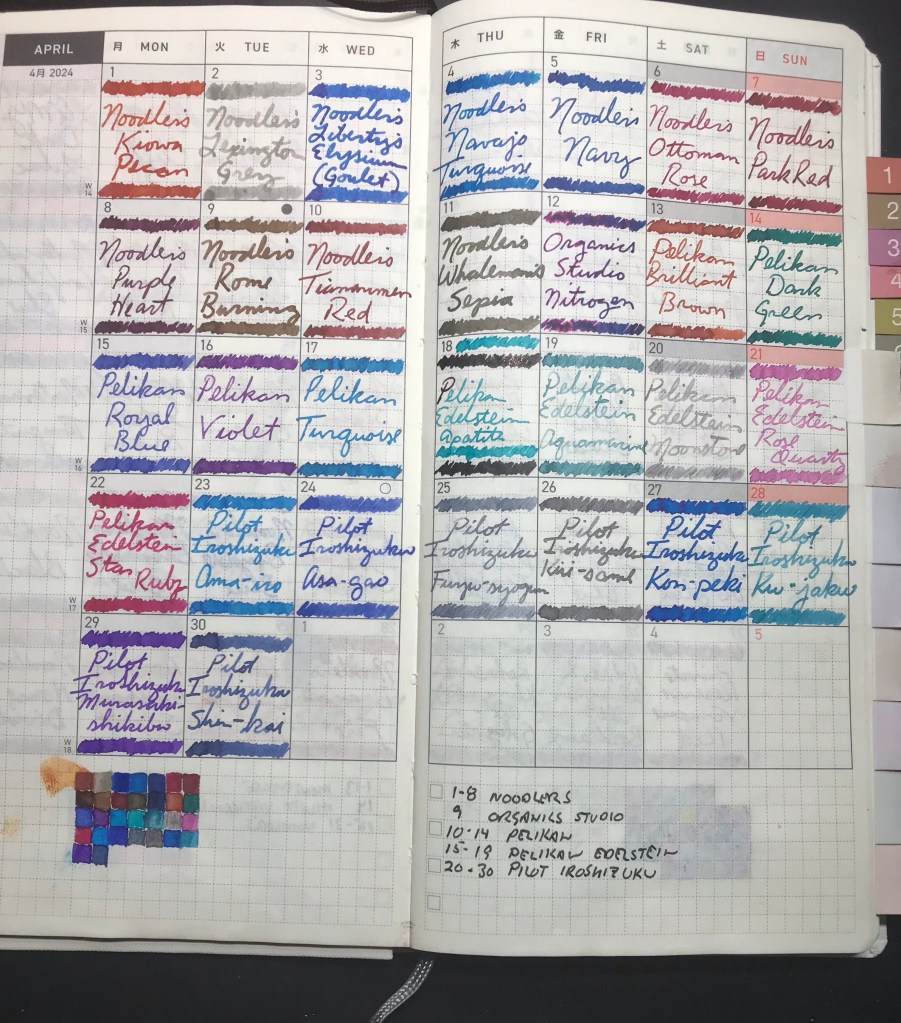 APRIL
4月 2024
月 MON
火 TUE
水 WED
木 THU
金 FRI
土 SAT
日 SUN
1
Noodler's
Kiowa
Pecan
2
Noodler's
Lexington
Grey
3
Noodler's
Liberty's
Elysium
(Goulet)
4
Noodler's
Navajo
Turquoise
5
Noodlers
Navy
6
Noodlers
Ottoman
Rose
7
Noodlers
Park Red
W
14
8
Noodlers
Purple
Heart
9
Noodler's
Rome
Burning
10
Noodlers
Tiananmen
Red
11
Noodlers
Whaleman's
Sepia
12
Organics
Studio
Nitrogen
13
Pelikan
Brilliant
Brown
14
Pelikan
Dark
Green
W
15
15
Pelikan
Royal
Blue
16
Pelikan
Violet
17
Pelikan
Turquoise
18
Pelikan
Edelstein
Apatite
19
Pelikan
Edelstein
Aquamarine
20
Pelikan
Edelstein
Moonstone
21
Pelikan
Edelstein
Rose
Quartz
W
16
22
Pelikan
Edelstein
Star Ruby
23
Pilot
Iroshizuku
Ama-iro
24
Pilot
Iroshizuku
Asa-gao
25
Pilot
Iroshizuku
Fuyu-syogun
26
Pilot
Iroshizuku
Kiri-same
27
Pilot
Iroshizuku
Kon-peki
28
Pilot
Iroshizuku
Ku-jaku
W
17
29
Pilot
Iroshizuku
Murasaki-
shikibu
30
Pilot
Iroshizuku
Shin-kai
1
2
3
4
5
W
18
1-8 NOODLERS
9 ORGANICS STUDIO
10-14 PELIKAN
15-19 PELIKAN EDELSTEIN
20-30 PILOT IROSHIZUKU
1
2
3
4
5